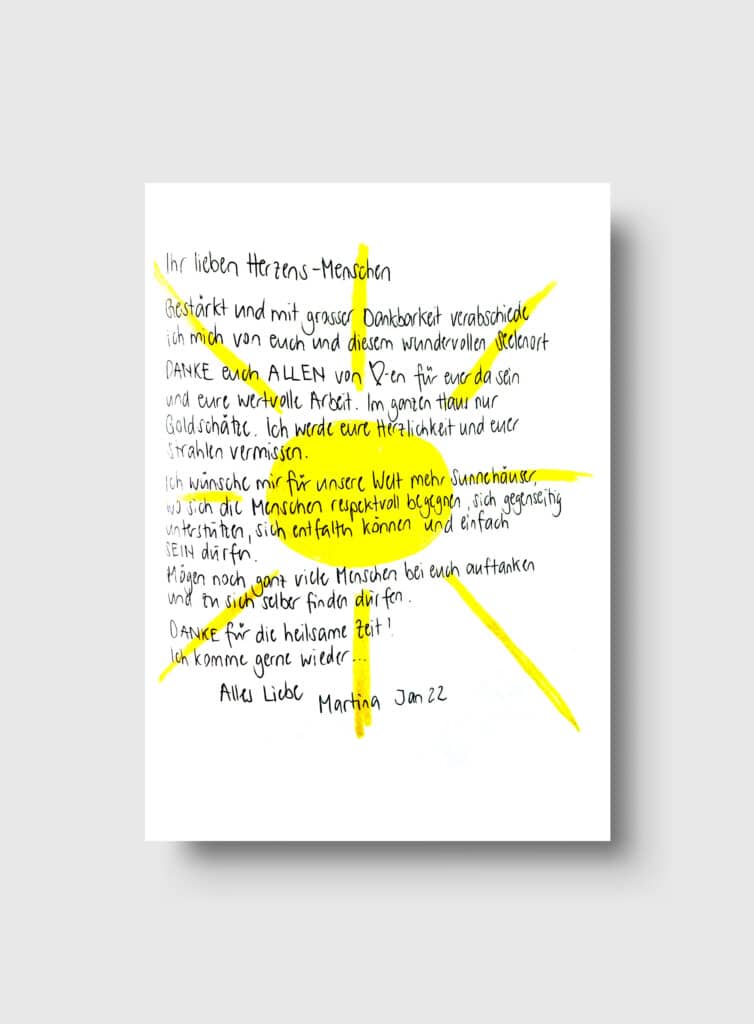 Ihr lieben Herzens-Menschen
Gestärkt und mit grosser Dankbarkeit verabschiede
ich mich von euch und diesem wundervollen Seelenort
DANKE euch ALLEN von ♡-en für euer da sein
und eure wertvolle Arbeit. Im ganzen Haus nur
Goldschätze. Ich werde eure Herzlichkeit und euer
Strahlen vermissen.
Ich wünsche mir für unsere Welt mehr Sunnehäuser,
wo sich die Menschen respektvoll begegnen, sich gegenseitig
unterstützen, sich entfaltn können und einfach
SEIN dürfen.
Mögen noch ganz viele Menschen bei euch auftanken
und zu sich selber finden dürfen.
DANKE für die heilsame Zeit!
Ich komme gerne wieder...
Alles Liebe Martina Jan 22